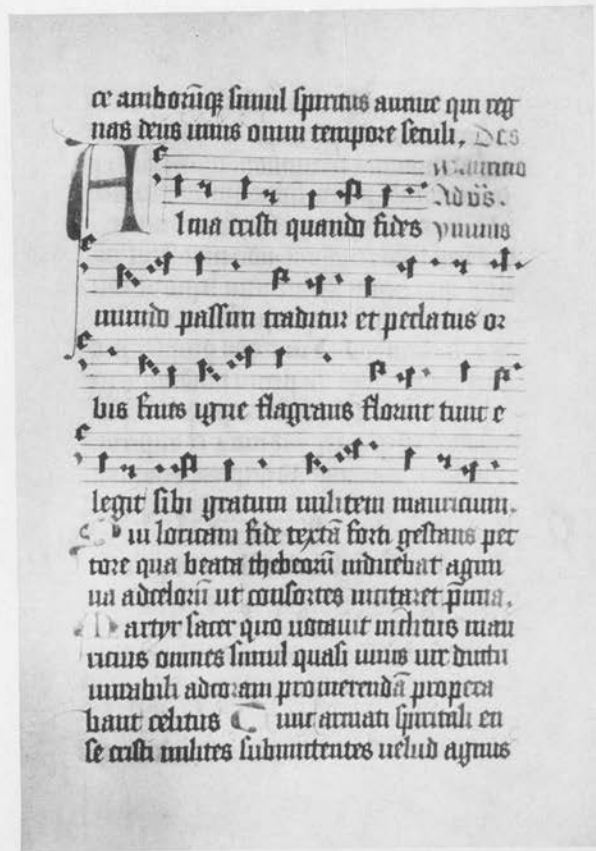 ce amborūqꝫ simul spiritus annue qui reg
nas deus unus omni tempore seculi. Des
mauricio
Ad vs̄.
Alma cristi quando fides ymnus
mundo passim traditur et per latus or
bis fines igne flagrans floruit tunc e
legit sibi gratum militem mauricum.
ui loricam fide textā forti gestans pec
tore qua beata thebeorū inducebat agmi
na ad celorū ut consortes incitaret p̄mia.
Martyr sacer quo uocauit inclitus mau
ricius omnes simul quasi unus uir dictu
mirabili ad coronam promerendā propera
bant celitus Tunc armati spiritali en
se cristi milites submittentes uelud agnus